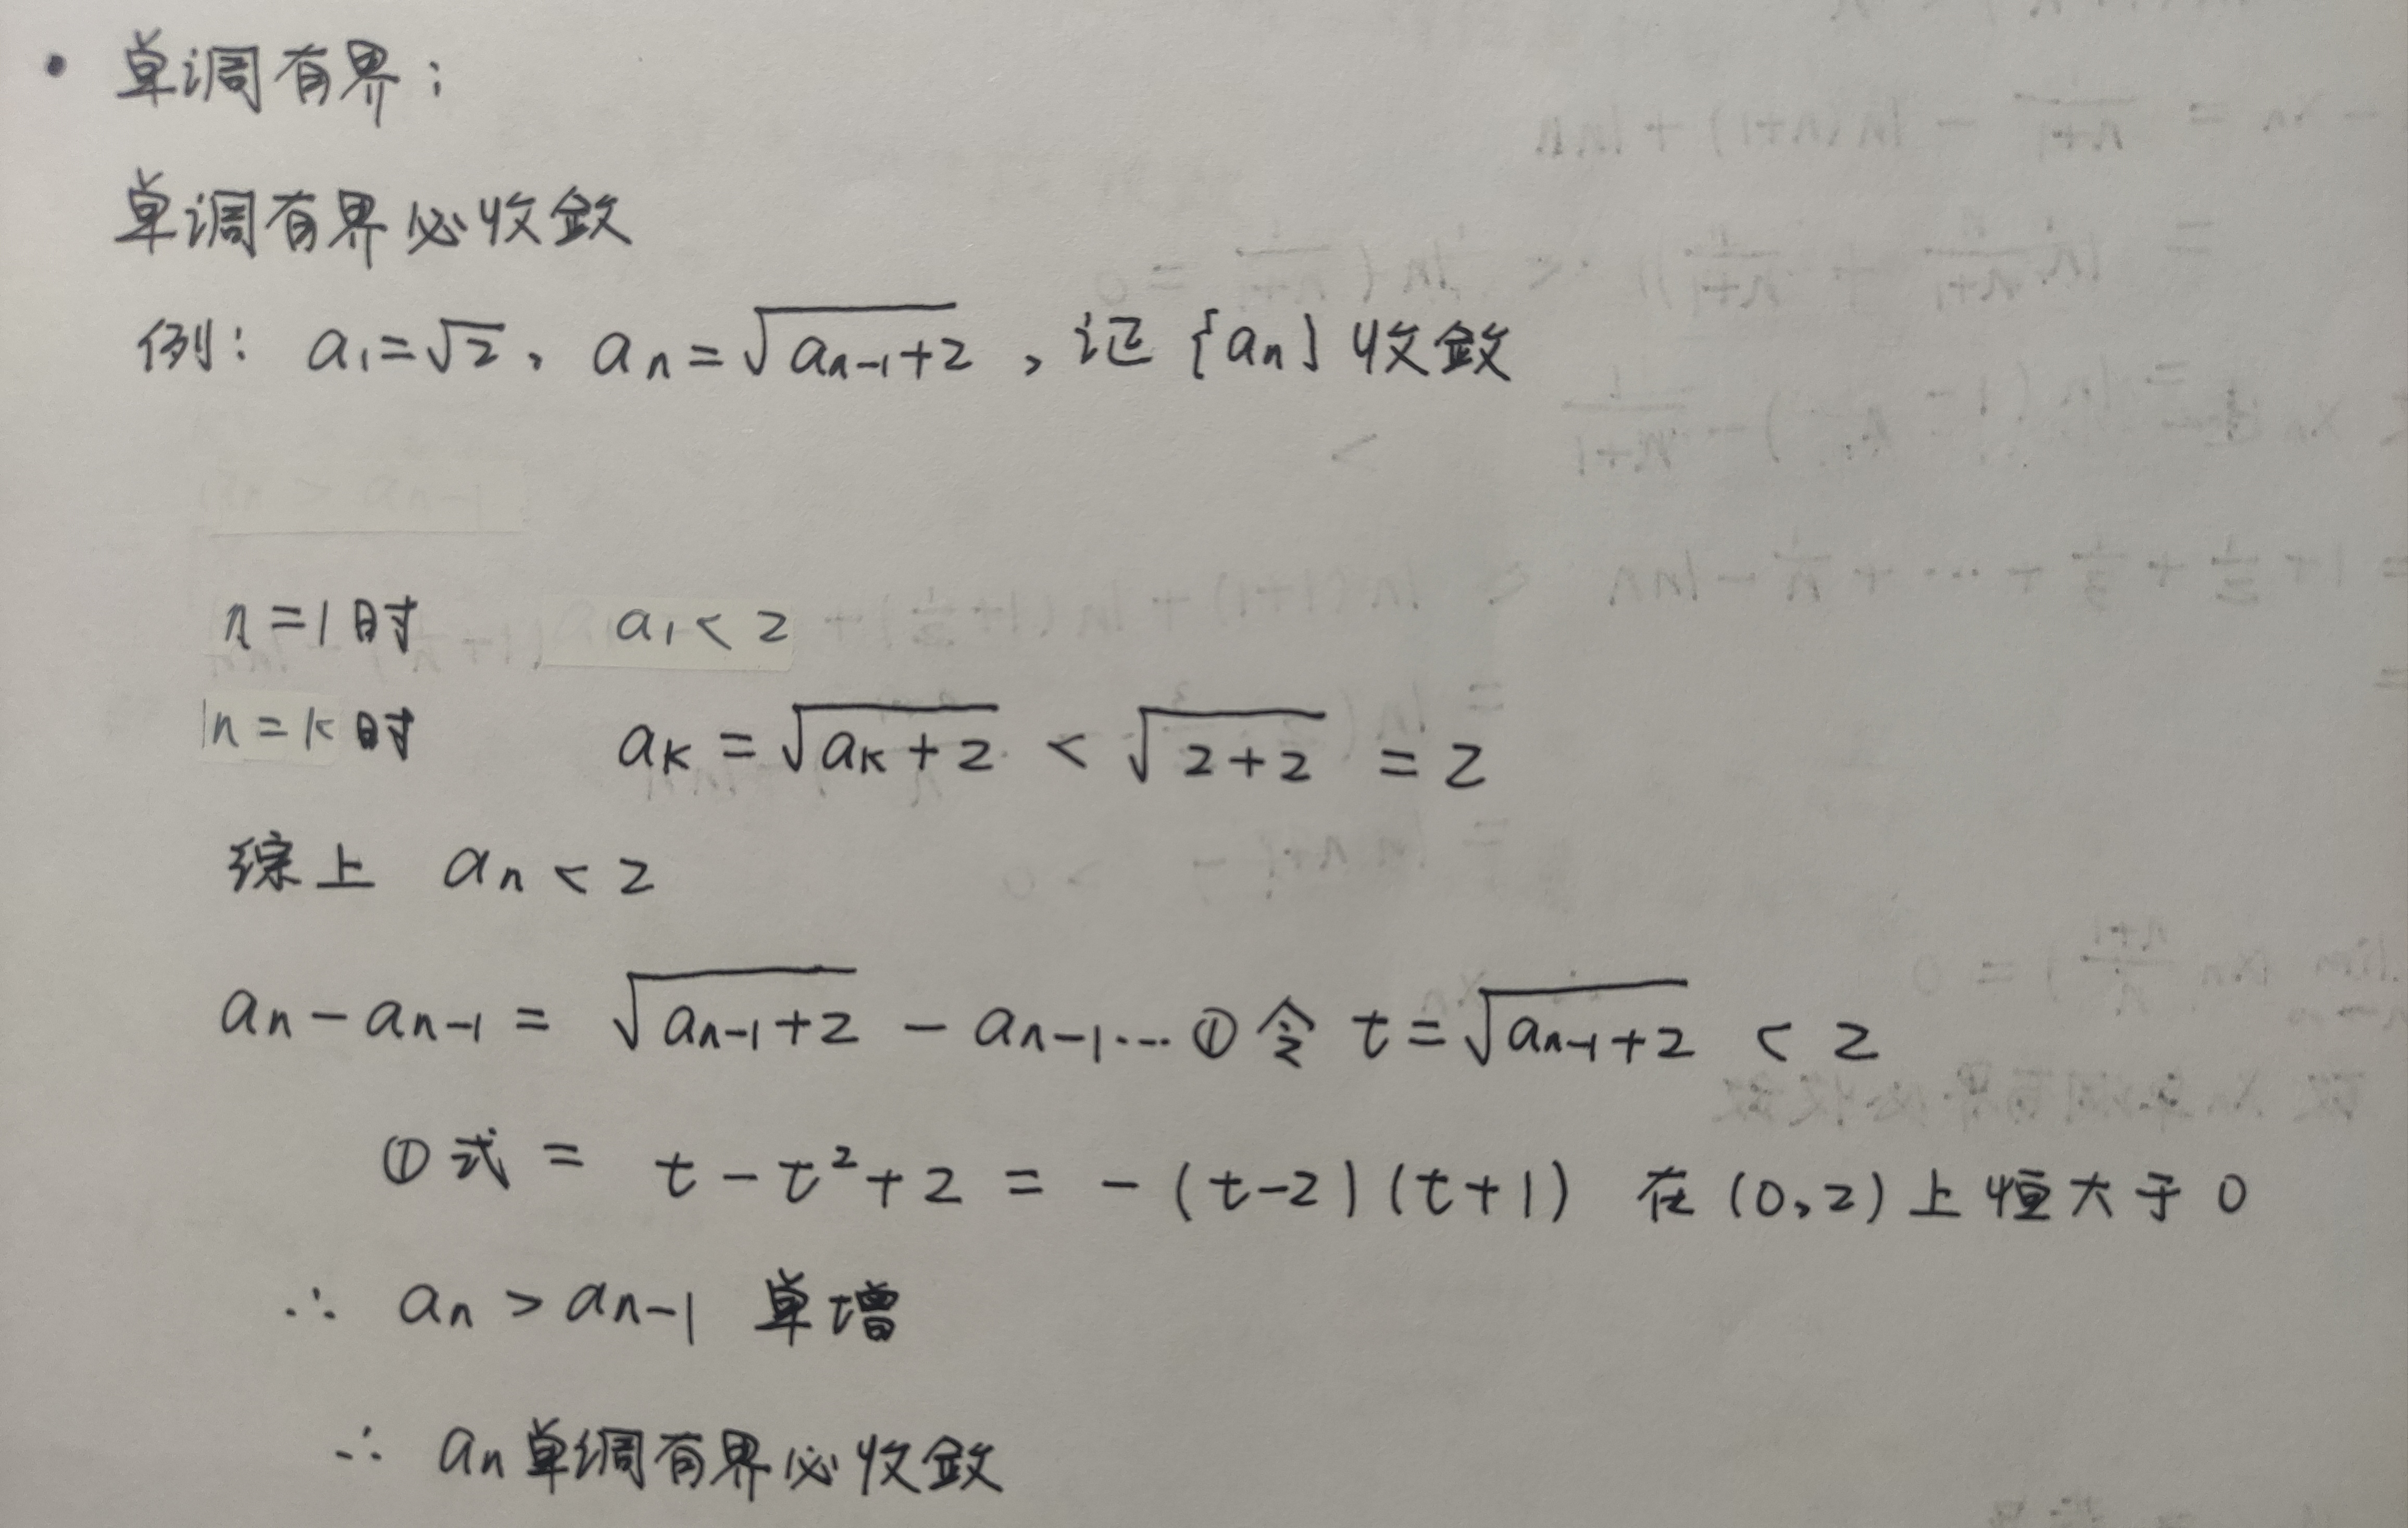 • 单调有界:
单调有界必收敛
例: a₁=√2, aₙ=√(aₙ₋₁+2), 证{aₙ}收敛
n=1时 a₁<2
n=k时 aₖ=√(aₖ+2) < √(2+2) =2
综上 aₙ<2
aₙ-aₙ₋₁ = √(aₙ₋₁+2) - aₙ₋₁…① 令 t=√(aₙ₋₁+2) <2
①式= t-t²+2 = -(t-2)(t+1) 在(0,2)上恒大于0
∴ aₙ>aₙ₋₁ 单增
∴ aₙ单调有界必收敛